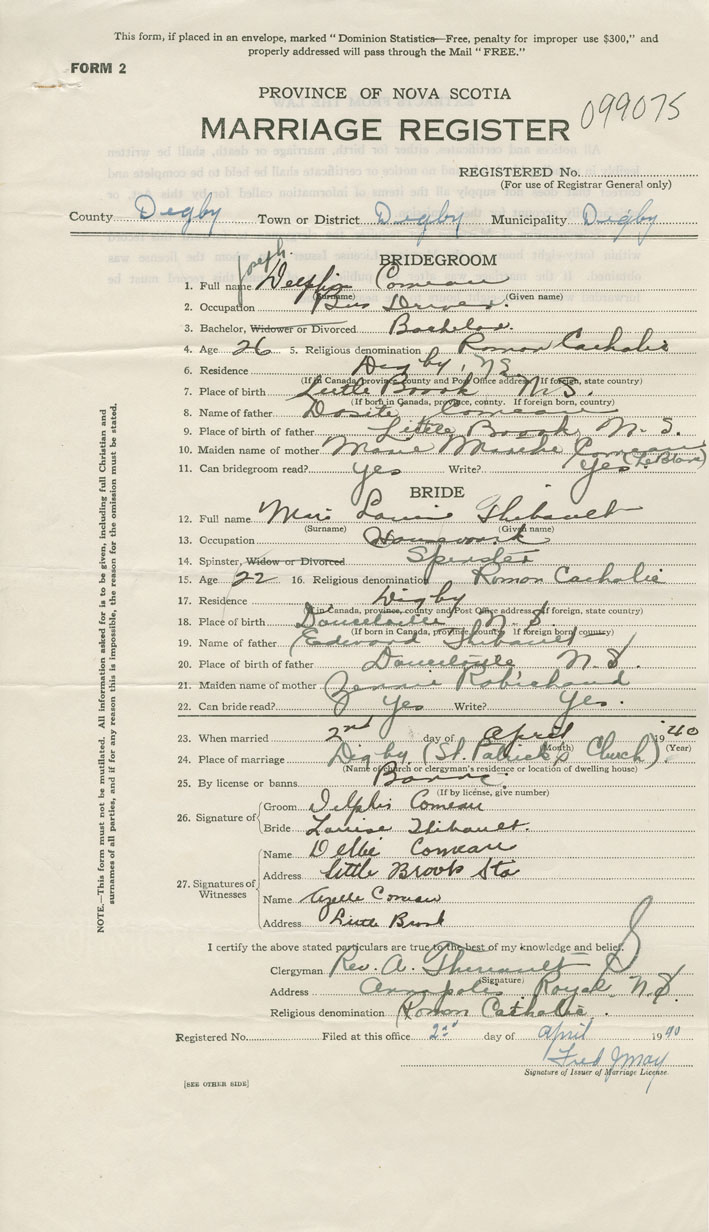 This form, if placed in an envelope, marked "Dominion Statistics—Free, penalty for improper use $300," and
properly addressed will pass through the Mail "FREE."
FORM 2
PROVINCE OF NOVA SCOTIA
099075
MARRIAGE REGISTER
REGISTERED No.
(For use of Registrar General only)
County Digby Town or District Digby Municipality Digby
BRIDEGROOM
Joseph
1. Full name Delphis Comeau
(Surname) (Given name)
2. Occupation Bus Driver.
3. Bachelor, Widower or Divorced Bachelor.
4. Age 26 5. Religious denomination Roman Catholic
6. Residence Digby, NS
(If in Canada, province, county and Post Office address. If foreign, state country)
7. Place of birth Little Brook N.S.
(If born in Canada, province, county. If foreign born, country)
8. Name of father Dosite Comeau
9. Place of birth of father Little Brook, N.S.
10. Maiden name of mother Marie Comeau (LeBlanc)
11. Can bridegroom read? Yes Write? Yes
BRIDE
12. Full name Louise Thibault
(Surname) (Given name)
13. Occupation Housework
14. Spinster, Widow or Divorced Spinster
15. Age 22 16. Religious denomination Roman Catholic
17. Residence Digby
(If in Canada, province, county and Post Office address. If foreign, state country)
18. Place of birth Doucetville N.S.
(If born in Canada, province, county. If foreign born, country)
19. Name of father Edward Thibault
20. Place of birth of father Doucetville N.S.
21. Maiden name of mother Jennie Robichaud
22. Can bride read? Yes Write? Yes.
23. When married 2nd day of April 1940
(Month) (Year)
24. Place of marriage Digby (St. Patrick's Church).
(Name of church or clergyman's residence or location of dwelling house)
25. By license or banns Banns.
(If by license, give number)
26. Signature of
Groom Delphis Comeau
Bride Louise Thibault.
27. Signatures of Witnesses
Name Comeau
Address Little Brook Sta
Name Comeau
Address Little Brook
I certify the above stated particulars are true to the best of my knowledge and belief.
Clergyman Rev. A. Theriault
(Signature)
Address Annapolis Royal N.S.
Religious denomination Roman Catholic.
Registered No. Filed at this office 2nd day of April 1940
Fred J May
Signature of Issuer of Marriage License.
[SEE OTHER SIDE]
NOTE.—This form must not be mutilated. All information asked for is to be given, including full Christian and
surnames of all parties, and if for any reason this is impossible, the reason for the omission must be stated.